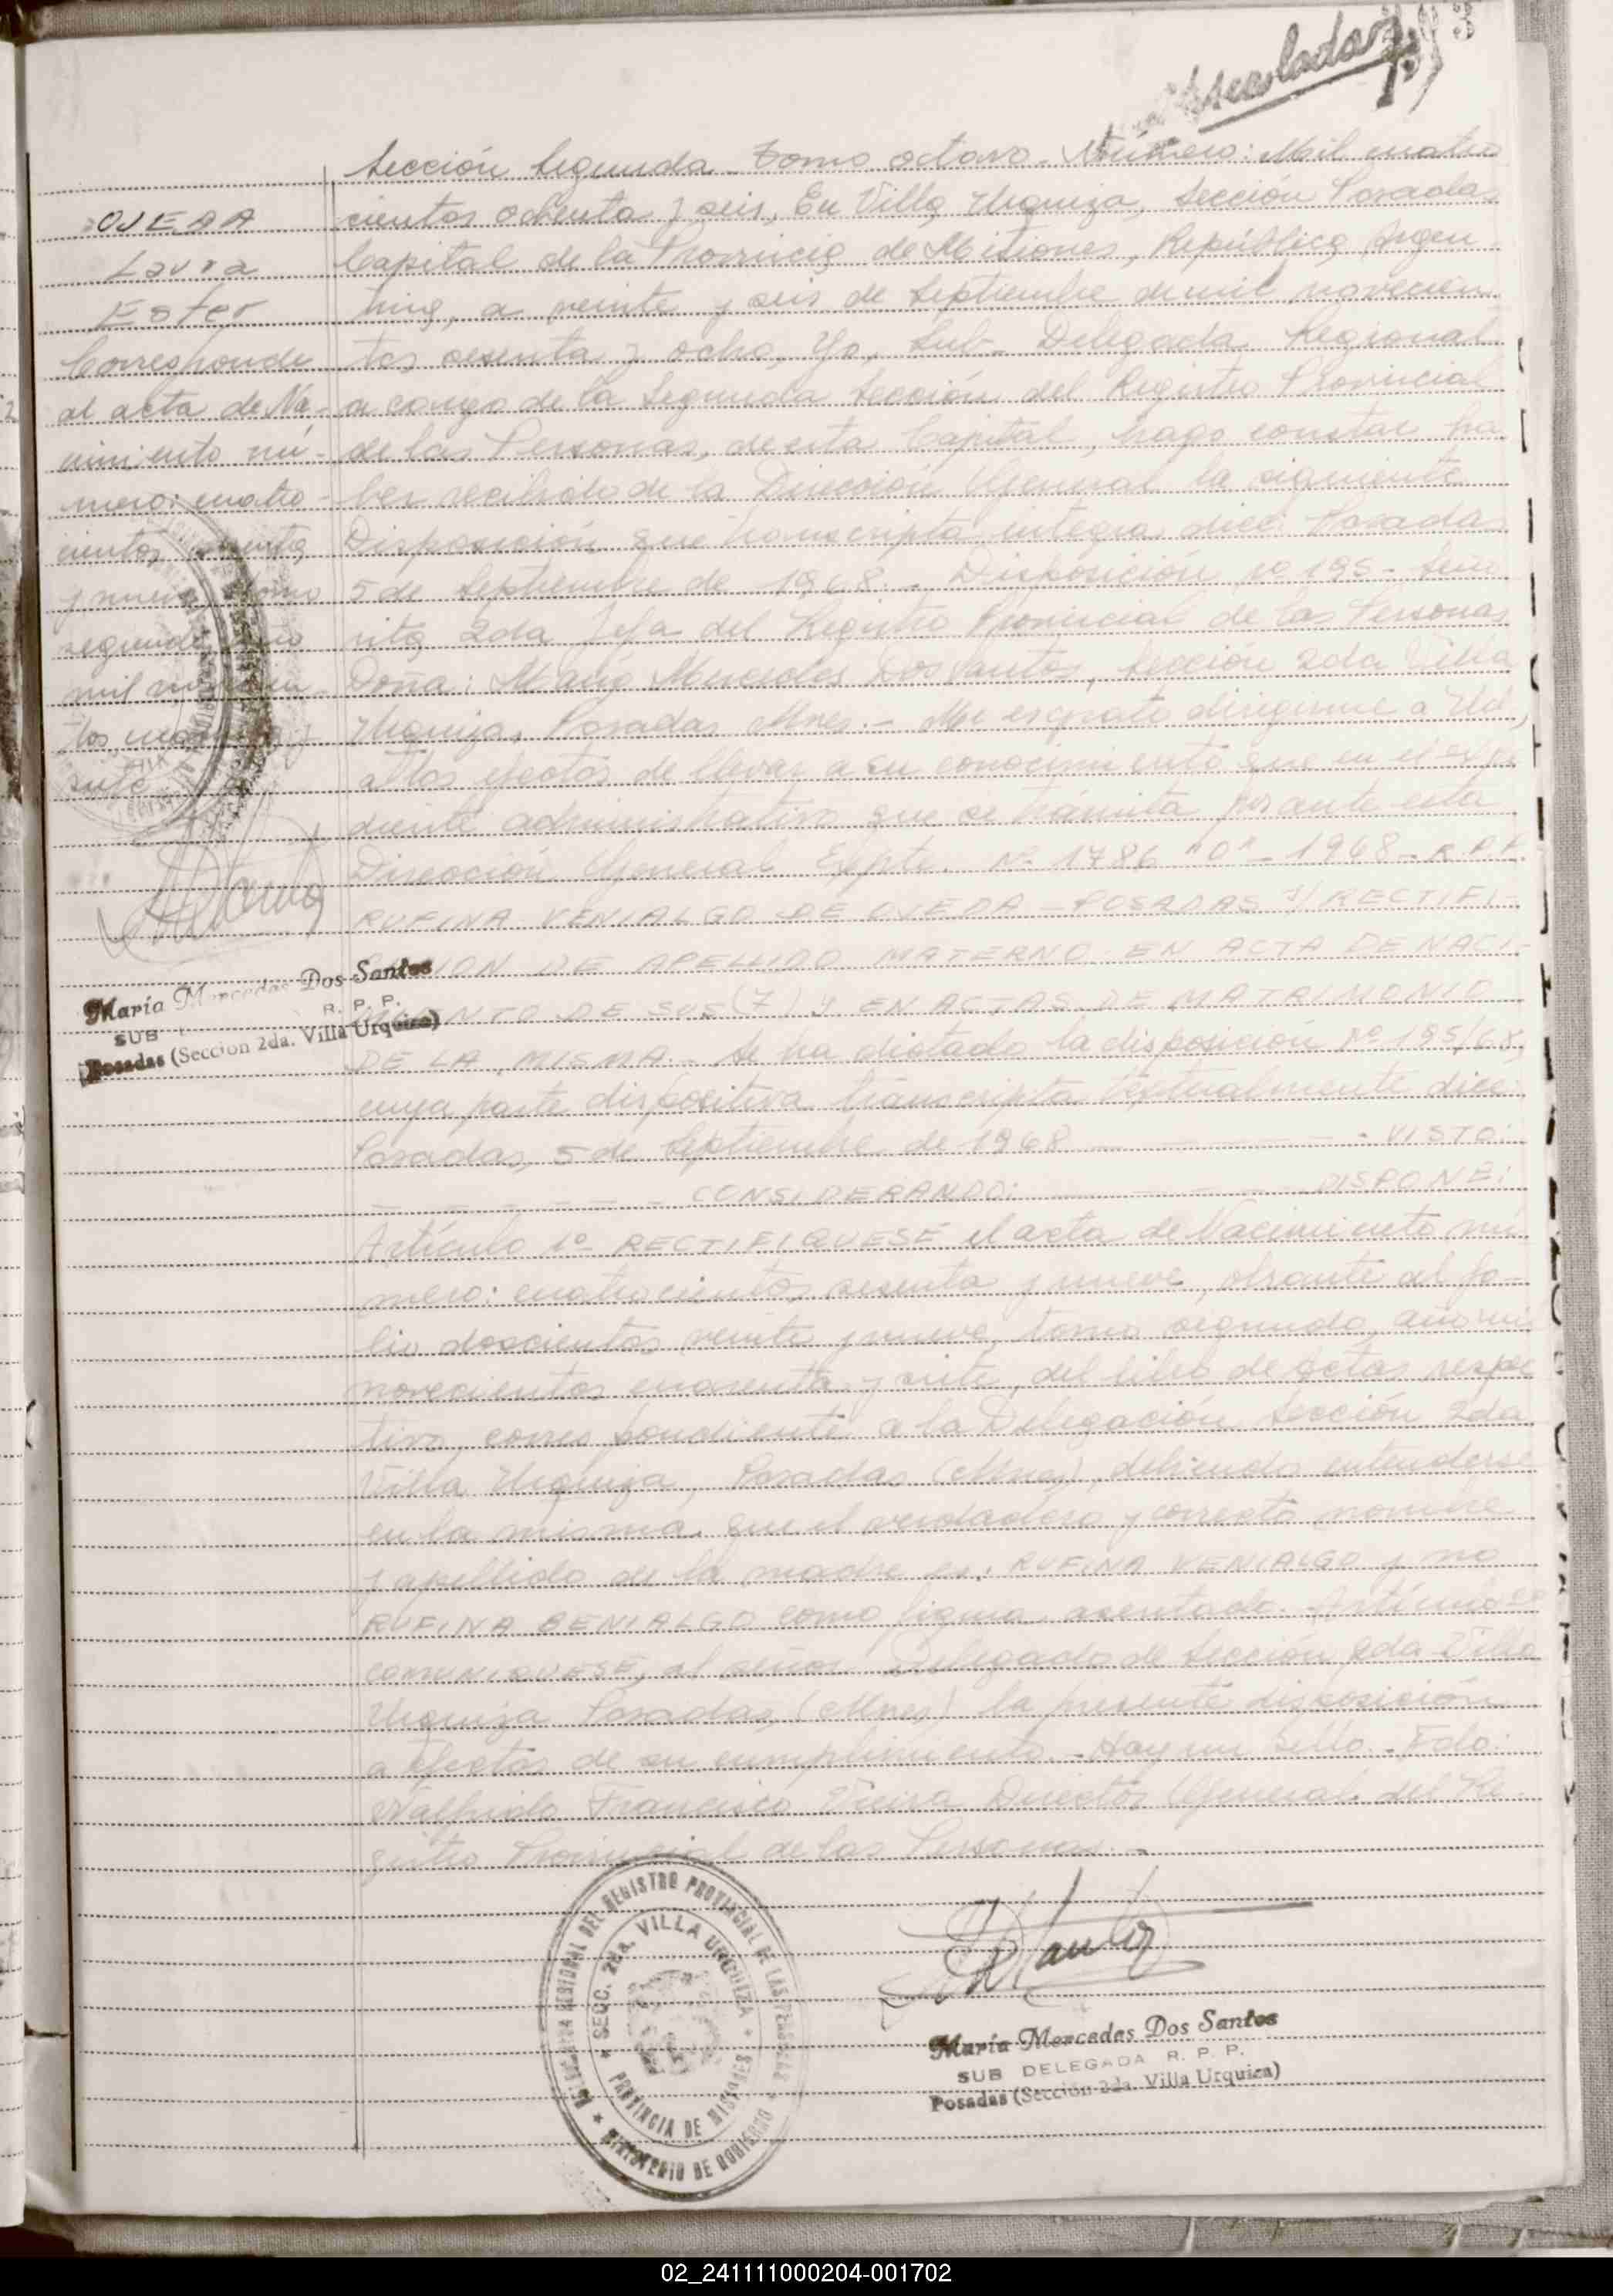 Sección Segunda - Tomo octavo - Número: Mil cuatro
cientos ochenta y seis, En Villa Urquiza, Sección Posadas
Capital de la Provincia de Misiones, República Argen
tina, a veinte y seis de Septiembre de mil novecien
tos sesenta y ocho, Yo, Sub-Delegada Regional
a cargo de la Segunda Sección del Registro Provincial
de las Personas, de esta Capital, hago constar ha
ber recibido de la Dirección General la siguiente
Disposición que transcripta integra dice: Posadas
5 de Septiembre de 1968.- Disposición nº 195- Seño
rita 2da Jefa del Registro Provincial de las Personas
Doña: María Mercedes Dos Santos, Sección 2da Villa
Urquiza, Posadas Mnes.- Me es grato dirigirme a Ud,
a los efectos de llevar a su conocimiento que en el expe
diente administrativo que se trámita por ante esta
Dirección General Expte. Nº 1786 "O" - 1968 - R.P.P.
RUFINA VENIALGO DE OJEDA - POSADAS S/ RECTIFI-
CION DE APELLIDO MATERNO EN ACTA DE NACI-
NTO DE SUS (7) y EN ACTAS DE MATRIMONIO
DE LA MISMA - Se ha dictado la disposición Nº 195/68,
cuya parte dispositiva transcripta textualmente dice:
Posadas, 5 de Septiembre de 1968 - - - - - VISTO:
- - - - - CONSIDERANDO: - - - - - DISPONE:
Artículo 1º RECTIFIQUESE el acta de Nacimiento nú
mero: cuatrocientos sesenta y nueve, obrante al fo-
lio doscientos veinte y nueve, tomo segundo, año mil
novecientos cuarenta y siete, del libro de actas respec
tivo, correspondiente a la Delegación Sección 2da
Villa Urquiza, Posadas (Mnes), debiendo entenderse
en la misma, que el verdadero y correcto nombre
y apellido de la madre es: RUFINA VENIALGO y no
RUFINA BENIALGO como figura asentado. Artículo 2º
COMUNIQUESE, al señor Delegado de Sección 2da Villa
Urquiza Posadas (Mnes) la presente disposición
a efectos de su cumplimiento.- Hay un sello.- Fdo:
Francisco Vieira Director General del Re-
gistro Provincial de las Personas.-
OJEDA
Laura
Ester
Corresponde
al acta de Na-
cimiento nú-
mero: cuatro-
cientos sesenta
y nueve, tomo
segundo, año
mil novecien
tos cuarenta y
siete
María Mercedes Dos Santos
SUB R. P. P.
Posadas (Sección 2da. Villa Urquiza)
REGIONAL DEL REGISTRO PROVINCIAL DE LAS PERSONAS
SECC. 2da. VILLA URQUIZA
PROVINCIA DE MISIONES
MINISTERIO DE GOBIERNO
María Mercedes Dos Santos
SUB DELEGADA R. P. P.
Posadas (Sección 2da. Villa Urquiza)
02_241111000204-001702